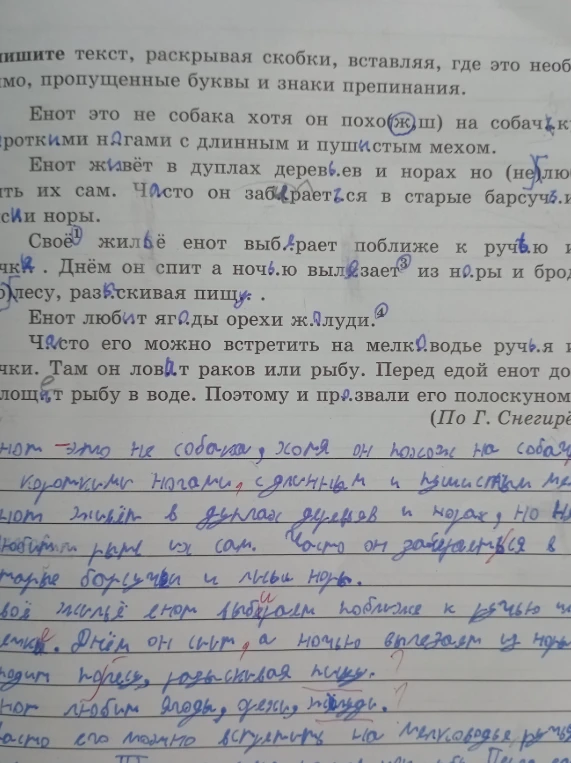 пишите текст, раскрывая скобки, вставляя, где это необ
имо, пропущенные буквы и знаки препинания.
Енот это не собака хотя он похо(ж,ш) на собачьк
роткими нагами с длинным и пушистым мехом.
Енот живёт в дуплах деревь.ев и норах но (не)лю
ить их сам. Часто он заберается в старые барсучь.и
си и норы.
Своё① жильё енот выберает поближе к ручью и
чки. Днём он спит а ночь.ю вылезает③ из норы и брод
о)лесу, разыскивая пищу.
Енот любит ягоды орехи жолуди.④
Часто его можно встретить на мелководье ручь.я и
чки. Там он ловит раков или рыбу. Перед едой енот до
лощет рыбу в воде. Поэтому и прозвали его полоскуном
(По Г. Снегирё
нот – это не собака, хотя он похож на собач
короткими ногами, с длинным и пушистым ме
нот живёт в дуплах деревьев и норах, но н
рыть их сам. Часто он заберается в
тарые барсучьи и лисьи норы.
воё жильё енот выбираем поближе к ручью и
Днём он спит, а ночью вылезает из норы
родит полесу, разыскивая пищу. ?
нот любит ягоды, орехи, жолуди. ?
асто его можно встретить на мелководье ручья